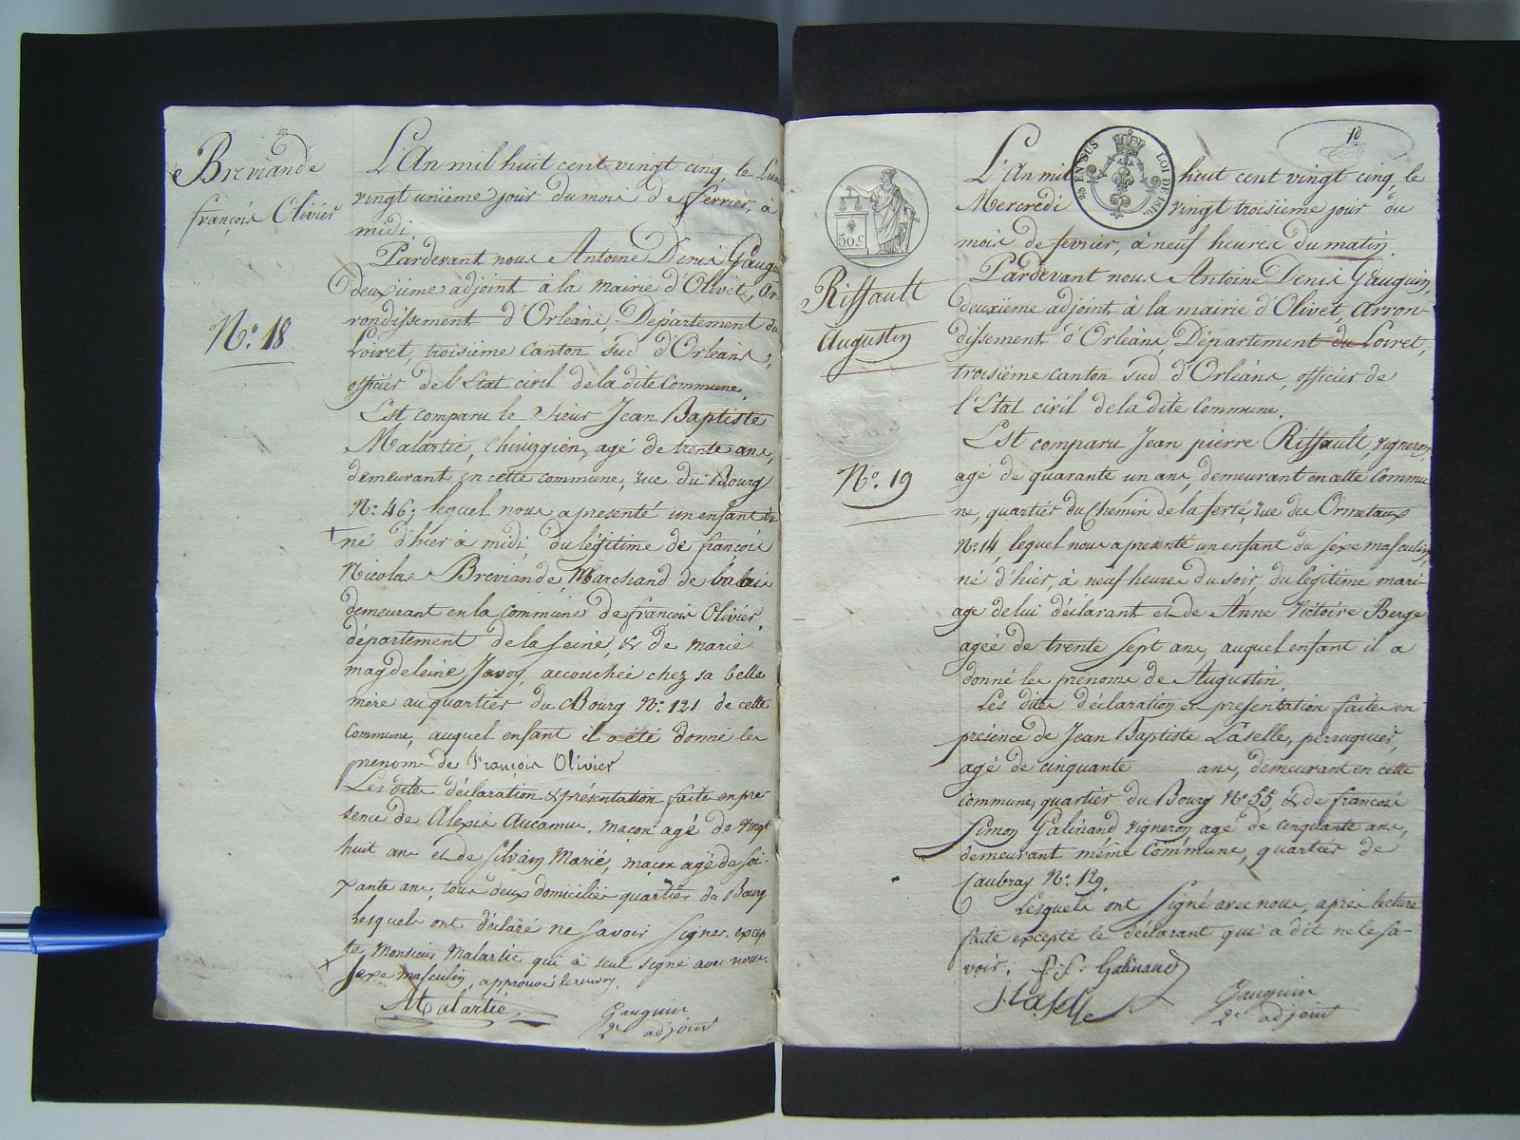 Breviande
françois Olivier
N.° 18
L'An mil huit cent vingt cinq, le Lundi
vingt unième jour du mois de fevrier, à
midi.
Pardevant nous Antoine Denis Gauguin
deuxieme adjoint à la mairie d'Olivet, Ar
rondissement d'Orleans, Département du
Loiret, troisième Canton sud d'Orleans,
officier de l'Etat civil de la dite Commune.
Est comparu le Sieur Jean Baptiste
Malartie, Chiruggien, agé de trente ans,
demeurant en cette commune, rue du Bourg
N.° 46, lequel nous a presenté un enfant
né d'hier a midi, du légitime de françois
Nicolas Breviande, Marchand de balais
demeurant en la Commune de françois Olivier,
département de la Seine, & de marie
magdeleine Javoy, accouchée chez sa belle
mère au quartier du Bourg N.° 121 de cette
Commune, auquel enfant il a été donné les
prenoms de François Olivier
Les dites déclaration & présentation faite en pre
sence de Alexis Aucamus, maçon agé de vingt
huit ans et de Silvain Marié, maçon agé de soi-
xante ans, tous deux domiciliés quartier du Bourg
Lesquels ont déclaré ne savoir signer, excep
té Monsieur Malartie qui a seul signé avec nous.
Sexe masculin, approuvé le renvoy.
Malartie
Gauguin
2e adjoint
10
EN SUS LOI DE 1816
50.c
Riffault
Augustin
N.° 19
L'An mil huit cent vingt cinq, le
Mercredi vingt troisième jour du
mois de fevrier, à neuf heures du matin.
Pardevant nous Antoine Denis Gauguin,
deuxième adjoint à la mairie d'Olivet, Arron-
dissement d'Orléans, Département du Loiret,
troisième canton sud d'Orléans, officier de
l'Etat civil de la dite Commune.
Est comparu Jean pierre Riffault, vigneron,
agé de quarante un ans, demeurant en cette Commu
ne, quartier du Chemin de la ferté, rue des Ormetaux
N.° 14 lequel nous a presenté un enfant du sexe masculin,
né d'hier, à neuf heures du soir, du légitime mari
age de lui déclarant et de Anne Victoire Berge
ageé de trente sept ans, auquel enfant il a
donné les prenoms de Augustin
Les dites déclaration et présentation faites en
présence de Jean Baptiste Laselle, perruquier,
agé de cinquante ans, demeurant en cette
commune, quartier du Bourg N.° 55, & de françois
Simon Galinand vigneron agé de cinquante ans,
demeurant même Commune, quartier de
Caubray N.° 129.
Lesquels ont signé avec nous, après lecture
faite excepté le déclarant qui a dit ne le sa-
voir. f. S. Galinand
J laselle
Gauguin
2e adjoint